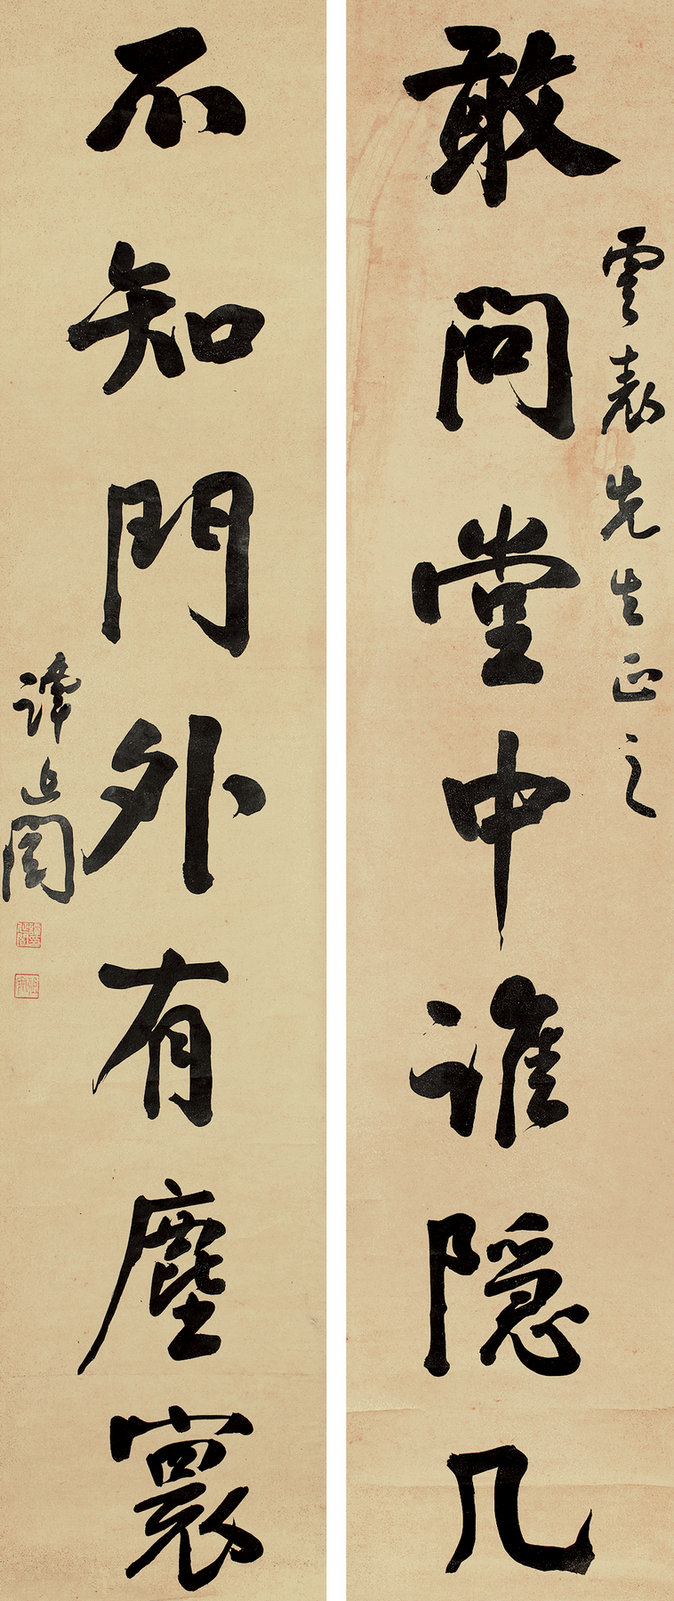 雲表先生正之
敢問堂中誰隱几
不知門外有塵寰
譚延闓